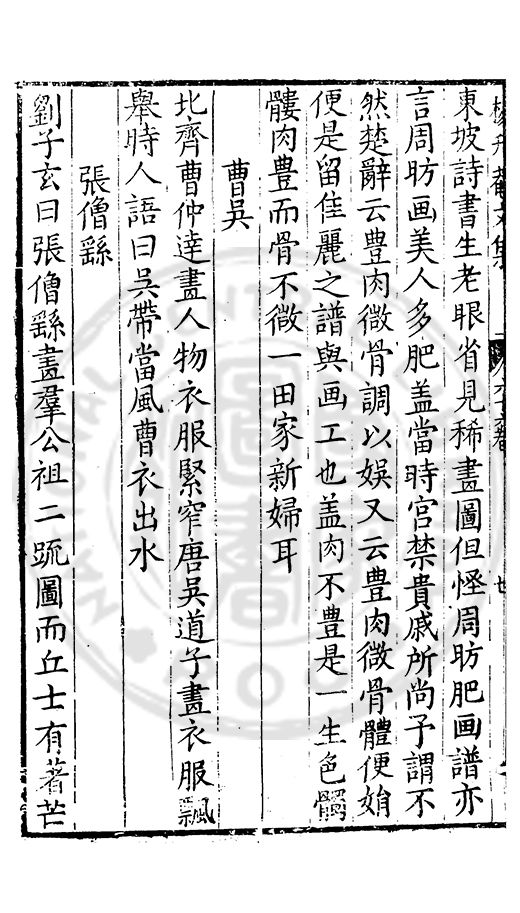 東坡詩書生老眼省見稀畫圖但怪周昉肥画譜亦
言周昉画美人多肥盖當時宮禁貴戚所尚予謂不
然楚辭云豊肉微骨調以娛又云豊肉微骨體便娟
便是留佳麗之譜與画工也盖肉不豊是一生色髑
髏肉豊而骨不微一田家新婦耳
曹吳
北齊曹仲達畫人物衣服緊窄唐吳道子畫衣服飄
舉時人語曰吳帶當風曹衣出水
張僧繇
劉子玄曰張僧繇畫羣公祖二疏圖而兵士有著芒